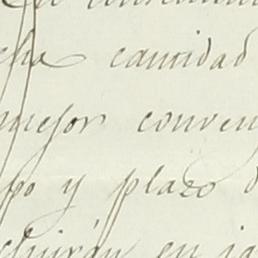 cha cantidad
mejor conven
po y plazo
cluirán en